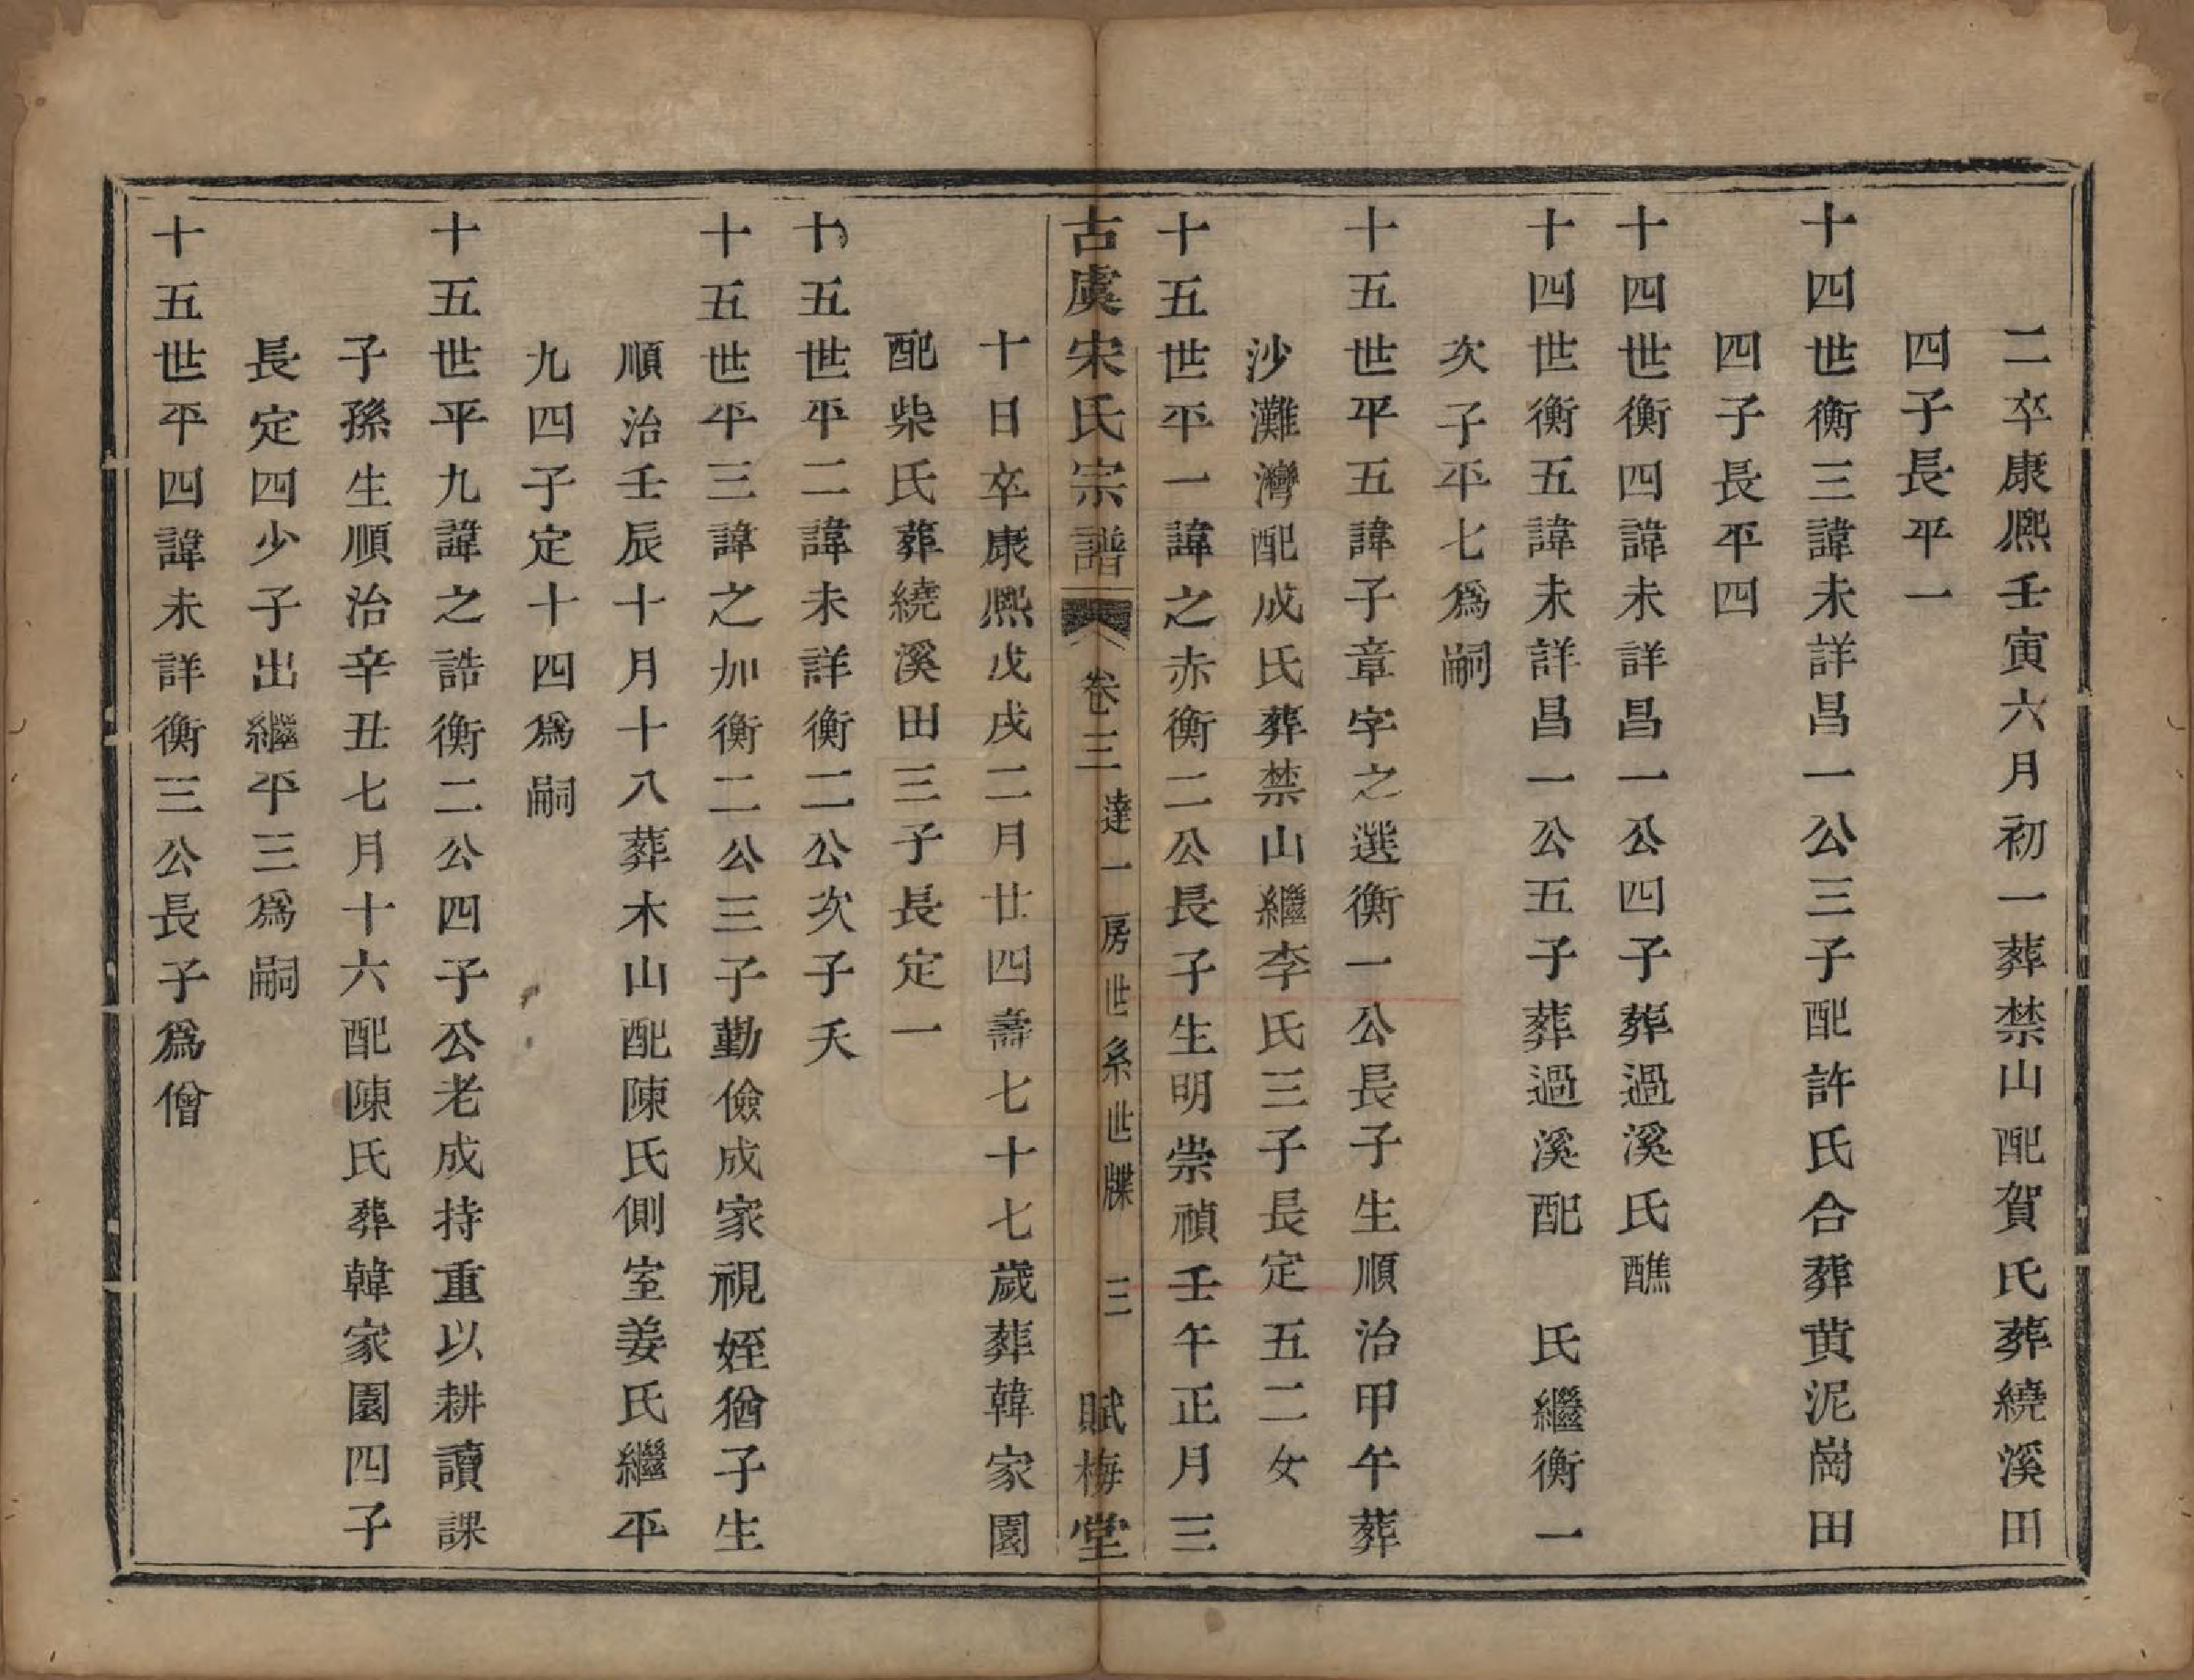 二卒康熙壬寅六月初一葬禁山配賀氏葬繞溪田
四子長平一
十四世衡三諱未詳昌一公三子配許氏合葬黄泥崗田
四子長平四
十四世衡四諱未詳昌一公四子葬過溪氏醮
十四世衡五諱未詳昌一公五子葬過溪配　氏繼衡一
次子平七爲嗣
十五世平五諱子章字之選衡一公長子生順治甲午葬
沙灘灣配成氏葬禁山繼李氏三子長定五二女
十五世平一諱之赤衡二公長子生明崇禎壬午正月三
古虞宋氏宗譜　卷三　達一房世系世牒　三　賦梅堂
十日卒康熙戊戌二月廿四壽七十七歲葬韓家園
配柴氏葬繞溪田三子長定一
十五世平二諱未詳衡二公次子夭
十五世平三諱之加衡二公三子勤儉成家視姪猶子生
順治壬辰十月十八葬木山配陳氏側室姜氏繼平
九四子定十四爲嗣
十五世平九諱之誥衡二公四子公老成持重以耕讀課
子孫生順治辛丑七月十六配陳氏葬韓家園四子
長定四少子出繼平三爲嗣
十五世平四諱未詳衡三公長子爲僧